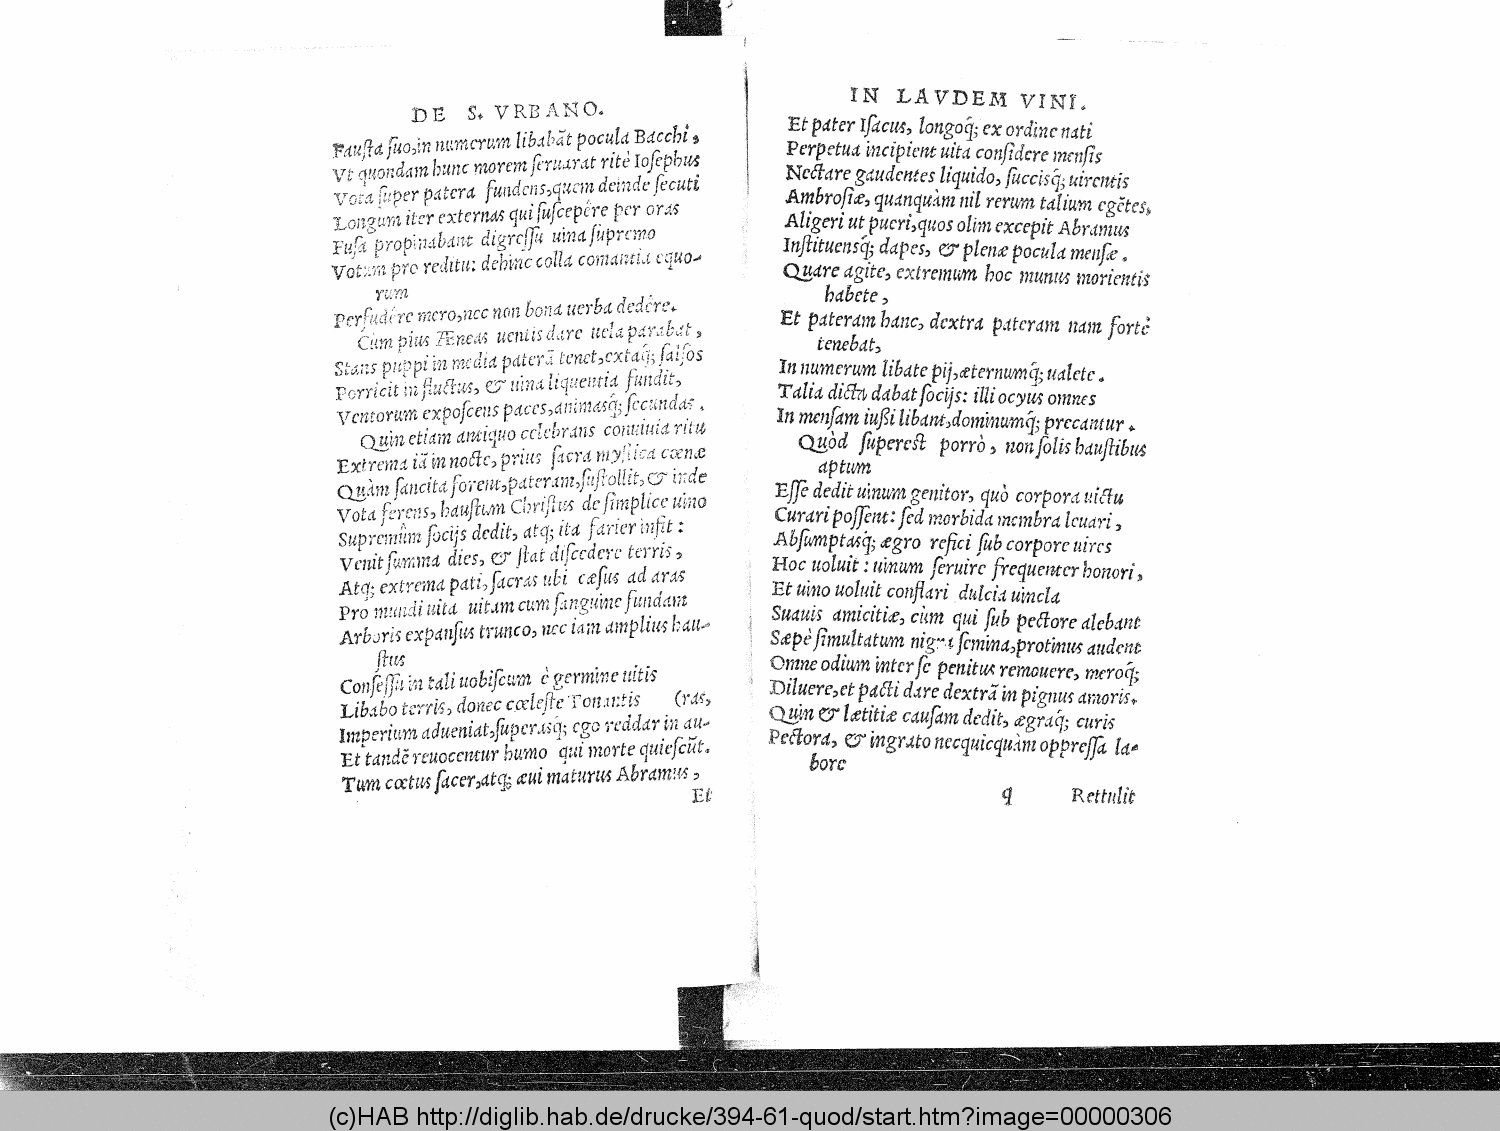 DE S. VRBANO.
Fausta suo, in numerum libabāt pocula Bacchi,
Vt quondam hunc morem seruarat ritè Iosephus
Vota super patera fundens, quem deinde secuti
Longum iter externas qui suscepêre per oras
Fusa propinabant digressu uina supremo
Votum pro reditu: dehinc colla comantia equo-
rum
Perfudêre mero, nec non bona uerba dedêre.
Cùm pius Æneas uentis dare uela parabat,
Stans puppi in media paterā tenet, extaq́; salsos
Porricit in fluctus, & uina liquentia fundit,
Ventorum exposcens paces, animasq́; secundas.
Quin etiam antiquo celebrans conuiuia ritu
Extrema iā in nocte, prius sacra mystica cœnæ
Quàm sancita forent, pateram, sustollit, & inde
Vota ferens, haustum Christus de simplice uino
Supremûm socijs dedit, atq; ita farier infit:
Venit summa dies, & stat discedere terris,
Atq; extrema pati, sacras ubi cæsus ad aras
Pro mundi uita uitam cum sanguine fundam
Arboris expansus trunco, nec iam amplius hau-
stus
Confessu in tali uobiscum è germine uitis
Libabo terris, donec cœleste Tonantis (ras,
Imperium adueniat, superasq́; ego reddar in au-
Et tandē reuocentur humo qui morte quiescūt.
Tum cœtus sacer, atq; æui maturus Abramus,
Et
IN LAVDEM VINI.
Et pater Isacus, longoq́; ex ordine nati
Perpetua incipient uita considere mensis
Nectare gaudentes liquido, succisq́; uirentis
Ambrosiæ, quanquàm nil rerum talium egētes,
Aligeri ut pueri, quos olim excepit Abramus
Instituensq́; dapes, & plenæ pocula mensæ.
Quare agite, extremum hoc munus morientis
habete,
Et pateram hanc, dextra pateram nam fortè
tenebat,
In numerum libate pij, æternumq́; ualete.
Talia dicta dabat socijs: illi ocyus omnes
In mensam iußi libant, dominumq́; precantur.
Quòd superest porrò, non solis haustibus
aptum
Esse dedit uinum genitor, quò corpora uictu
Curari possent: sed morbida membra leuari,
Absumptasq́; ægro refici sub corpore uires
Hoc uoluit: uinum seruire frequenter honori,
Et uino uoluit conflari dulcia uincla
Suauis amicitiæ, cùm qui sub pectore alebant
Sæpè simultatum nigra semina, protinus audent
Omne odium inter se penitus remouere, meroq́;
Diluere, et pacti dare dextrā in pignus amoris.
Quin & lætitiæ causam dedit, ægraq́; curis
Pectora, & ingrato necquicquàm oppressa la-
bore
q Rettulit
(c)HAB http://diglib.hab.de/drucke/394-61-quod/start.htm?image=00000306